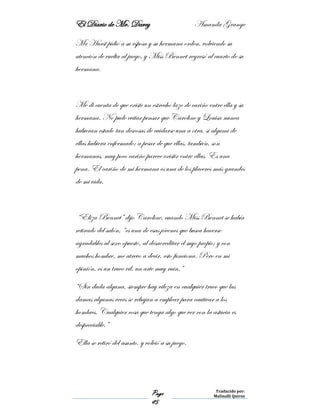 El Diario de Mr. Darcy Amanda Grange
Mr Hurst pidió a su esposa y su hermana orden, volviendo su
atención de vuelta al juego, y Miss Bennet regresó al cuarto de su
hermana.
Me di cuenta de que existe un estrecho lazo de cariño entre ella y su
hermana. No pude evitar pensar que Caroline y Louisa nunca
hubieran estado tan deseosas de cuidarse una a otra, si alguna de
ellas hubiera enfermado; a pesar de que ellas, también, son
hermanas, muy poco cariño parece existir entre ellas. Es una
pena. El cariño de mi hermana es una de los placeres más grandes
de mi vida.
“Eliza Bennet” dijo Caroline, cuando Miss Bennet se había
retirado del salón, “es una de esas jóvenes que busca hacerse
agradables al sexo opuesto, al desacreditar el suyo propio; y con
muchos hombres, me atrevo a decir, esto funciona. Pero en mi
opinión, es un truco vil, un arte muy ruin.”
“Sin duda alguna, siempre hay vileza en cualquier truco que las
damas algunas veces se rebajan a emplear para cautivar a los
hombres. Cualquier cosa que tenga algo que ver con la astucia es
despreciable.”
Ella se retiró del asunto, y volvió a su juego.
Page
45
Traducido por:
Malinalli Quiroz